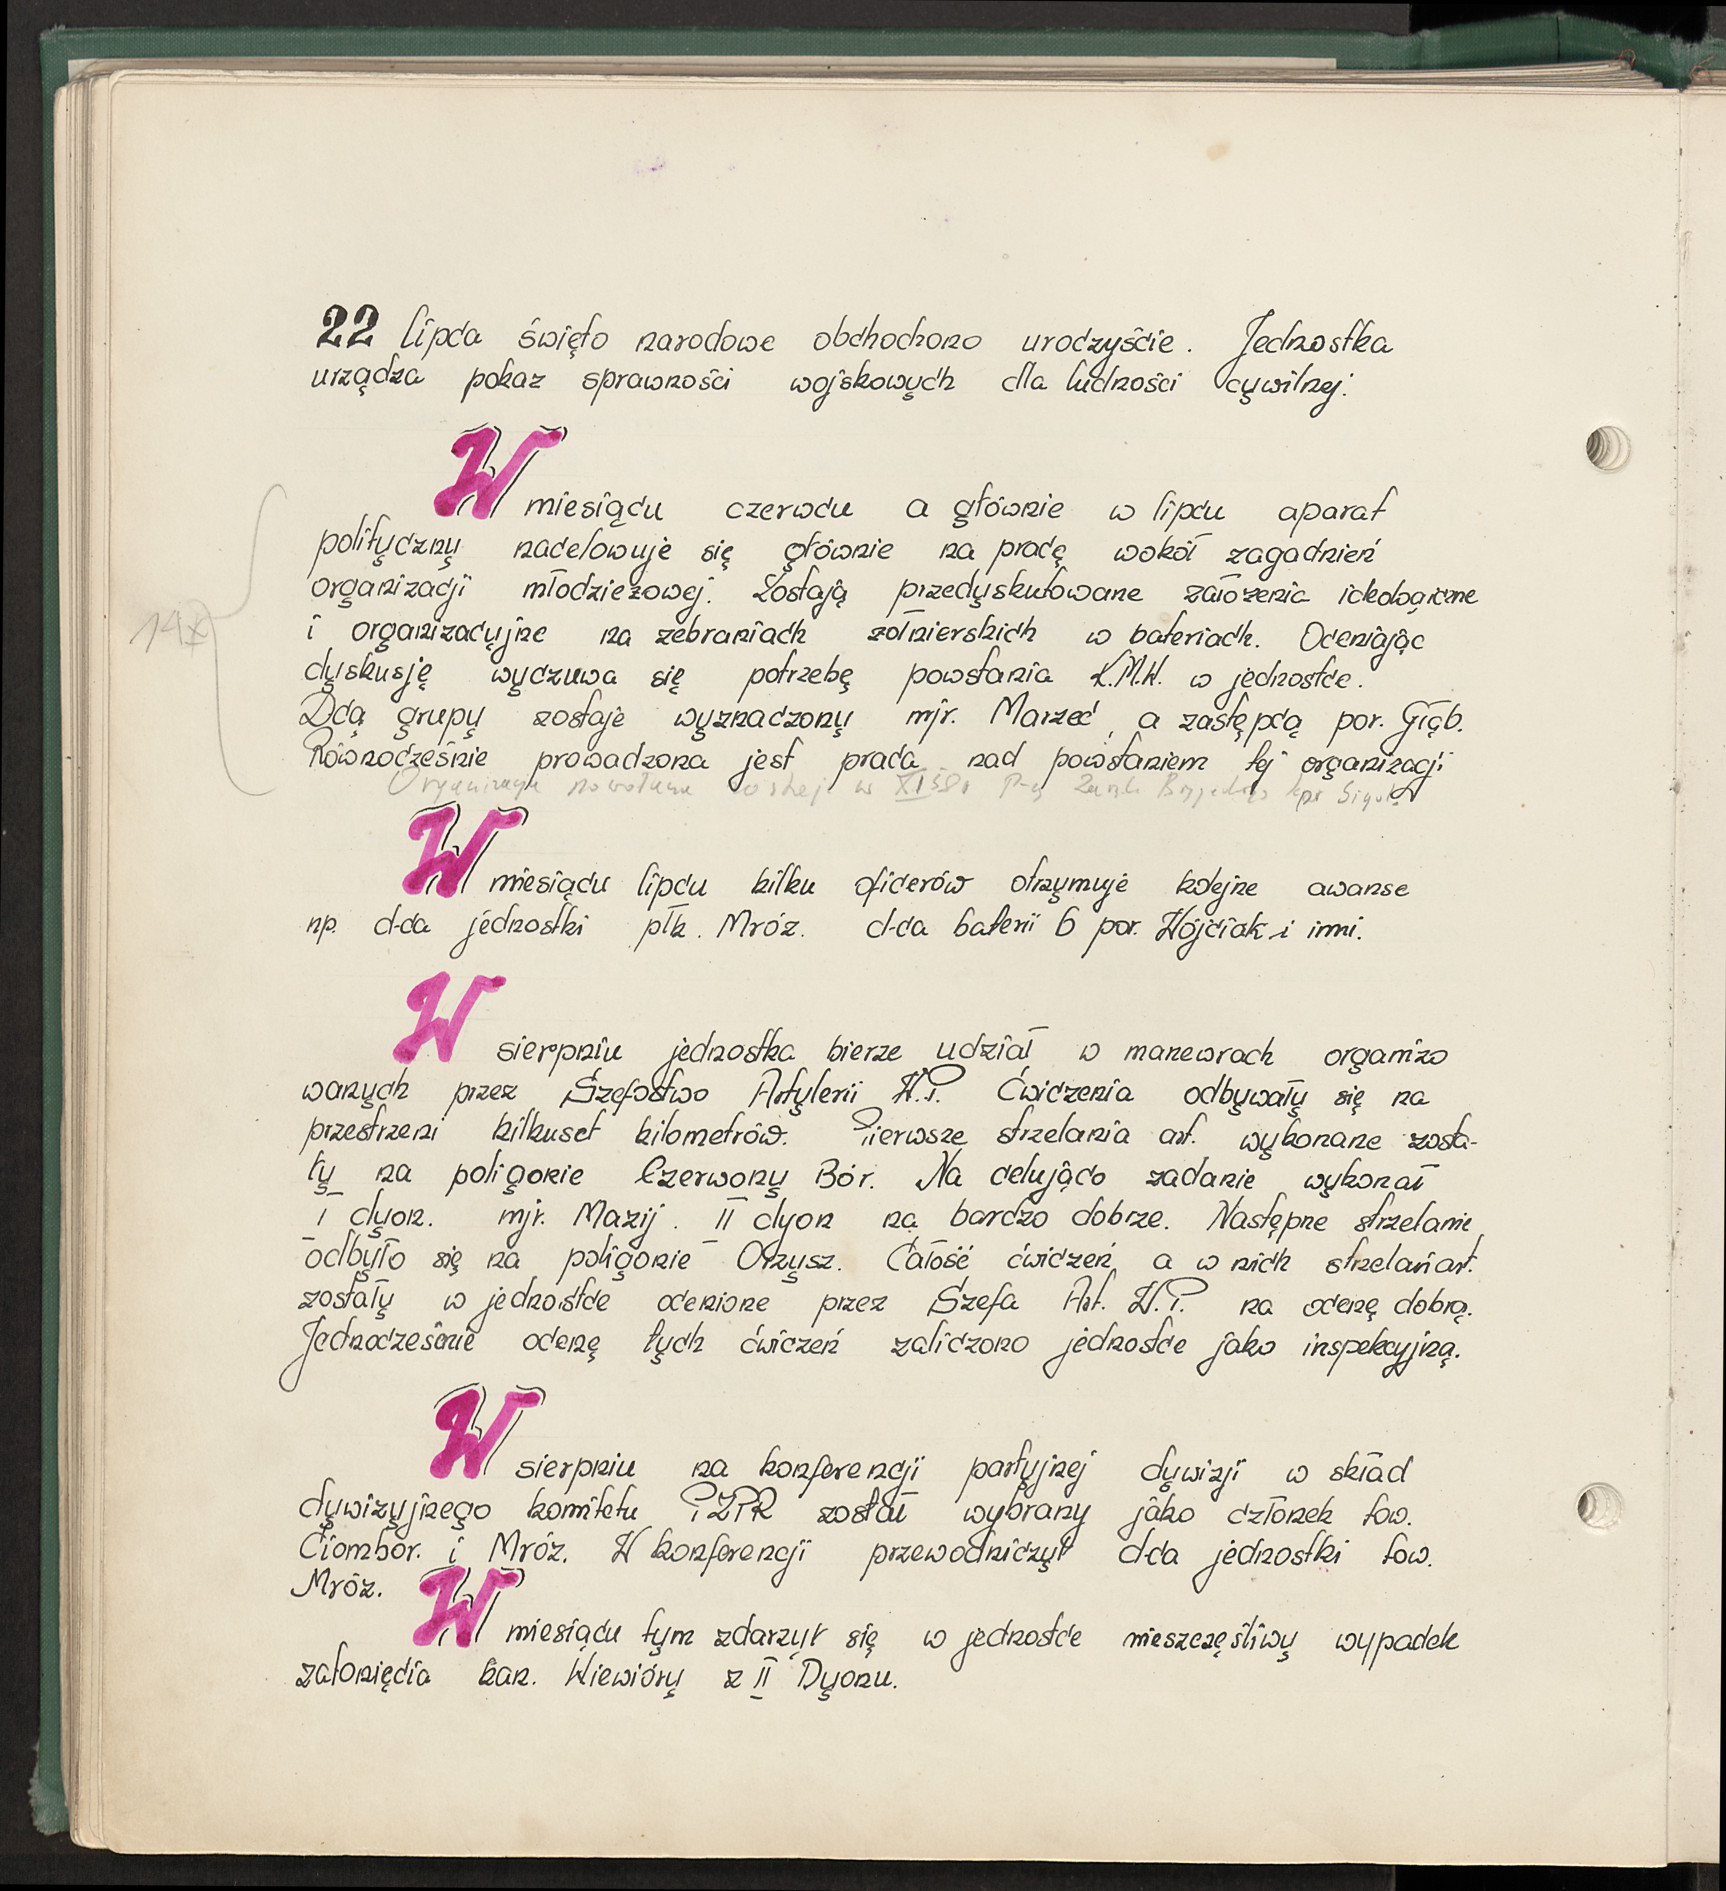 22 lipca święto narodowe obchodzono uroczyście. Jednostka
urządza pokaz sprawności wojskowych dla ludności cywilnej.
W miesiącu czerwcu a głównie w lipcu aparat
polityczny nacelowuje się głównie na pracę wokół zagadnień
organizacji młodzieżowej. Zostają przedyskutowane założenia ideologiczne
i organizacyjne na zebraniach żołnierskich w bateriach. Oceniając
dyskusję wyczuwa się potrzebę powstania K.M.W. w jednostce.
Dcą grupy zostaje wyznaczony mjr. Marzec, a zastępcą por. Głąb.
Równocześnie prowadzona jest praca nad powstaniem tej organizacji
Organizacja w XI 58r
14x
W miesiącu lipcu kilku oficerów otrzymuje kolejne awanse
np. d-ca jednostki płk. Mróz. d-ca baterii 6 por. Wójciak i inni.
W sierpniu jednostka bierze udział w manewrach organizo
wanych przez Szefostwo Artylerii W.P. Ćwiczenia odbywały się na
przestrzeni kilkuset kilometrów. Pierwsze strzelania art. wykonane zosta-
ły na poligonie Czerwony Bór. Na celująco zadanie wykonał
I dyon. mjr. Mazij. II dyon na bardzo dobrze. Następne strzelanie
odbyło się na poligonie Orzysz. Całość ćwiczeń, a w nich strzelań art.
zostały w jednostce ocenione przez Szefa Art. W.P. na ocenę dobrą.
Jednocześnie ocenę tych ćwiczeń zaliczono jednostce jako inspekcyjną.
W sierpniu na konferencji partyjnej dywizji w skład
dywizyjnego komitetu PZPR został wybrany jako członek tow.
Ciombor. i Mróz. W konferencji przewodniczył d-ca jednostki tow.
Mróz.
W miesiącu tym zdarzył się w jednostce nieszczęśliwy wypadek
zatonięcia kan. Wiewióry z II Dyonu.